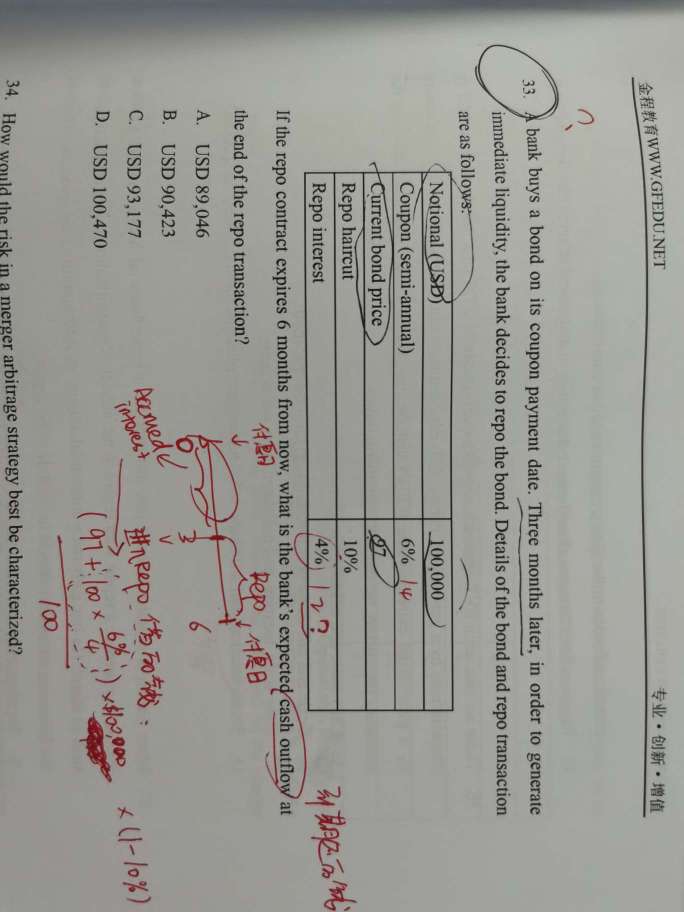 金程教育WWW.GFEDU.NET 专业·创新·增值
33. A bank buys a bond on its coupon payment date. Three months later, in order to generate
immediate liquidity, the bank decides to repo the bond. Details of the bond and repo transaction
are as follows:
Notional (USD) 100,000
Coupon (semi-annual) 6% 14
Current bond price 97
Repo haircut 10%
Repo interest 4% 12?
If the repo contract expires 6 months from now, what is the bank's expected cash outflow at
the end of the repo transaction?
A. USD 89,046
B. USD 90,423
C. USD 93,177
D. USD 100,470
付息日
Repo 付息日
0 3 6
Accrued
interest
进入repo 借
(97 + 100 × 6%/4) × $100,000 × (1-10%)
100
34. How would the risk in a merger arbitrage strategy best be characterized?